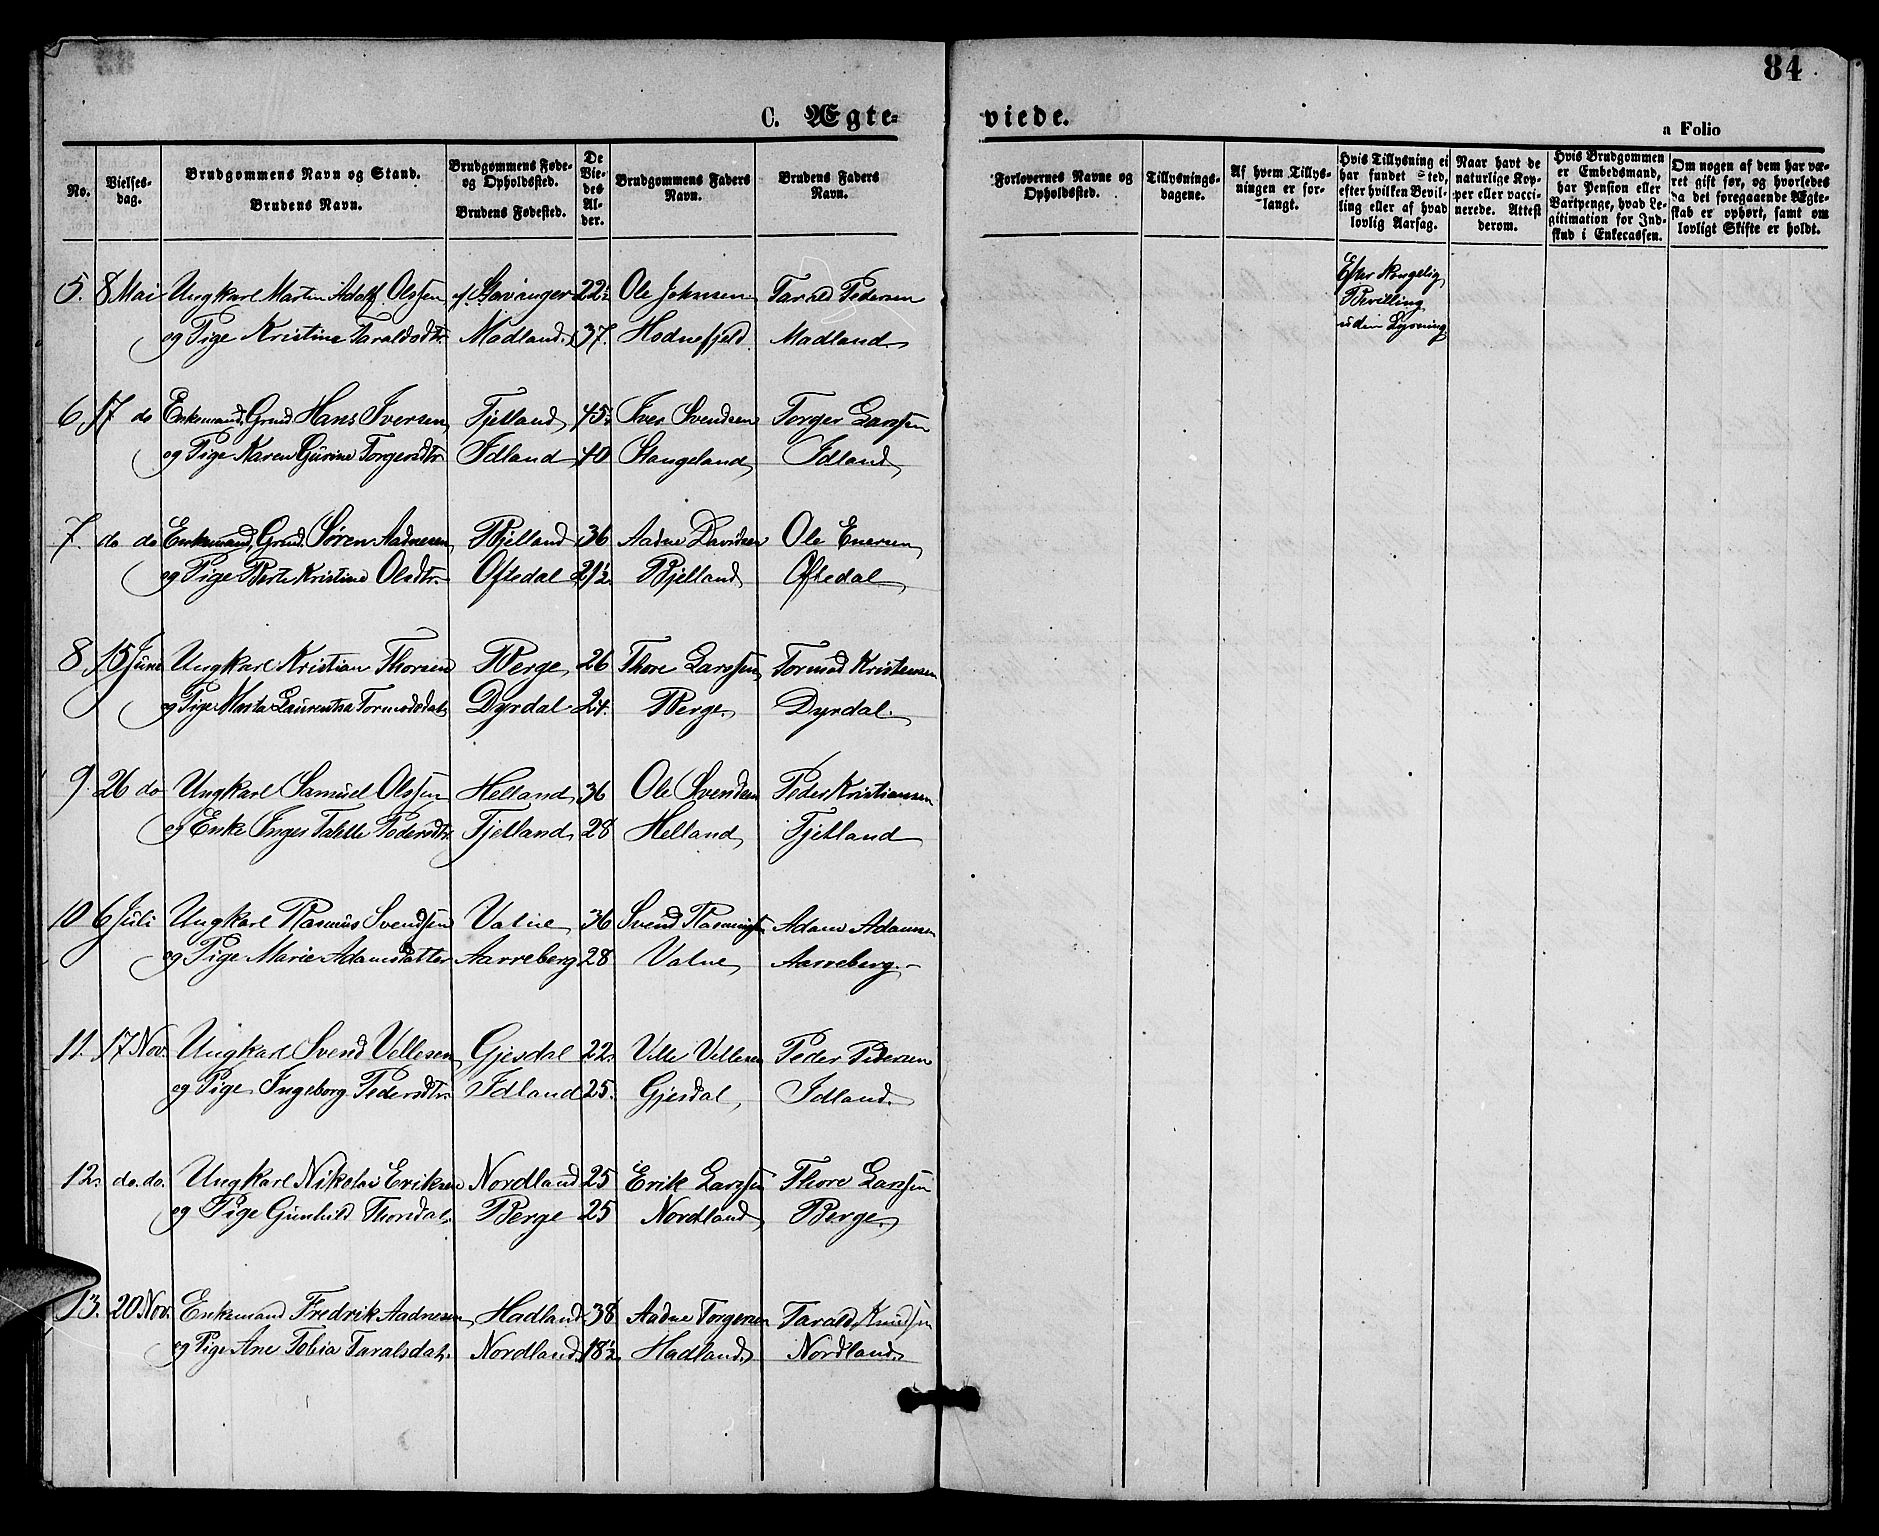 84
C. Ægte-
viede.
a Folio
No.
Vielses-
dag.
Brudgommens Navn og Stand.
Brudens Navn.
Brudgommens Føde-
og Opholdssted.
Brudens Fødested.
De
Vie-
des
Al-
der.
Brudgommens Faders
Navn.
Brudens Faders
Navn.
Forlovernes Navne og
Opholdssted.
Tillysnings-
dagene.
Af hvem Tillys-
ningen er for-
langt.
Hvis Tillysning ei
har fundet Sted,
efter hvilken Bevil-
ling eller af hvad
lovlig Aarsag.
Naar havt de
naturlige Kop-
per eller vacci-
nerede. Attest
derom.
Hvis Brudgommen
er Embedsmand,
har Pension eller
Vartpenge, hvad Le-
gitimation for Ind-
skud i Enkecassen.
Om nogen af dem har væ-
ret gift før, og hvorledes
da det foregaaende Ægte-
skab er ophørt, samt om
lovligt Skifte er holdt.
5. 8 Mai Ungkarl Martin Adolf Olssen f. Stavanger 22½ Ole Johnsen Tarald Pedersen
og Pige Kristine Taraldsdtr. Madland 37. Hodnefjeld Madland
Efter Kongelig
Bevilling
uden Lysning
6. 17 do Enkemand, Grmd. Hans Iversen Fjelland 45½ Iver Svendsen Torger Larssen
og Pige Karen Gurine Torgersdtr. Idland 40 Stangeland Idland
7. do do Enkemand, Grmd. Søren Aadnesen Bjelland 36 Aadne Davidsen Ole Enersen
og Pige Berte Kristine Olsdtr. Oftedal 21½ Bjelland Oftedal
8. 15 Juni Ungkarl Kristian Thorsen Berge 26 Thore Larssen Tormod Kristensen
og Pige Marta Laurentsa Tormodsdat. Dyrdal 24. Berge. Dyrdal.
9. 26 do Ungkarl Samuel Olssen Helland 36 Ole Svendsen Peder Kristiansen
og Enke Inger Talette Pedersdtr. Fjelland 28 Helland Fjelland
10 6 Juli Ungkarl Rasmus Svendsen Value 36 Svend Rasmuss. Adam Adamsen
og Pige Marie Adamsdatter Aarreberg 28 Value Aarreberg.
11. 17 Nov. Ungkarl Svend Vellesen Gjesdal 22. Velle Vellesen Peder Pedersen
og Pige Ingeborg Pedersdtr. Idland 25. Gjesdal Idland.
12. do. do. Ungkarl Nikolai Eriksen Nordland 25 Erik Larssen Thore Larssen
og Pige Gunhild Thorsdat. Berge 25 Nordland Berge
13. 20 Nov. Enkemand Fredrik Aadnesen Hadland 38 Aadne Torgersen Tarald Knudsen
og Pige Ane Tobia Taralsdat. Nordland 18½ Hadland Nordland